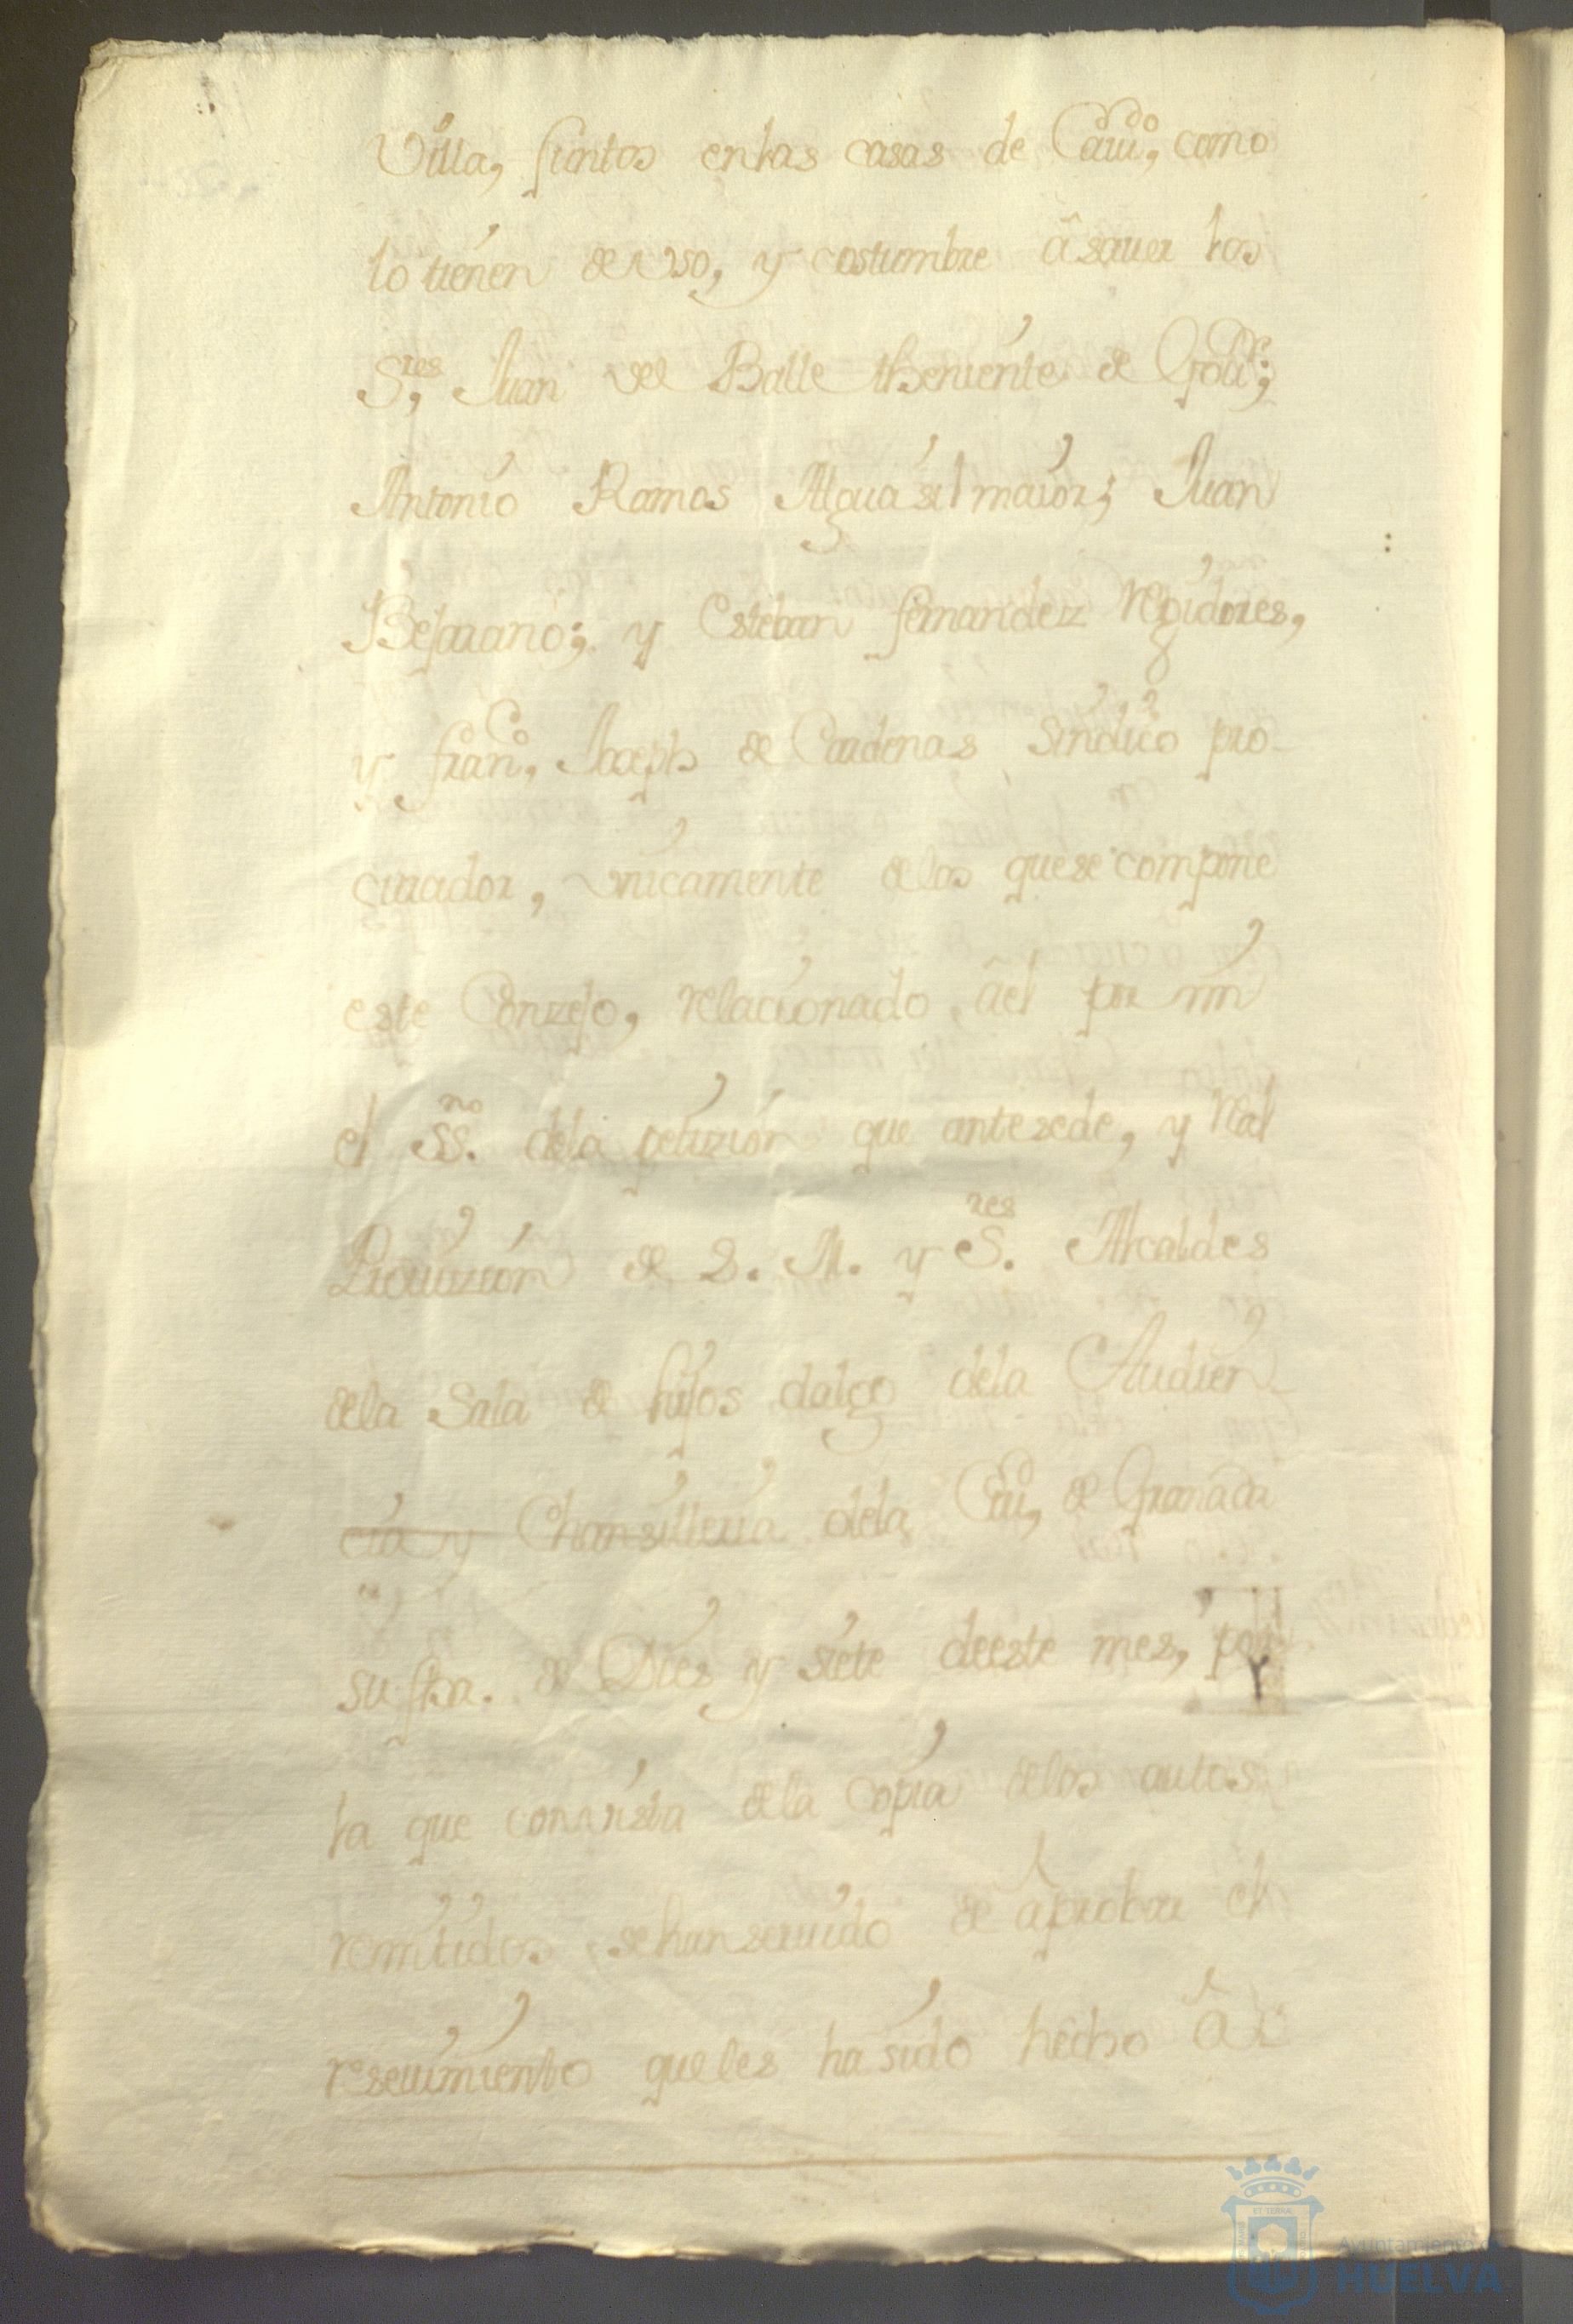 Villa, Juntos enlas casas de Cauidº, como
lo tienen de vso, y costumbre â sauer los
Sres, Juan del Balle theniente de Gour.;
Antonio Ramos Alguasil maior; Juan
Bejarano; y Esteban fernandez regidores,
y franco, Joseph de Cardenas sindico pro-
curador, vnicamente delos quese compone
este Conzejo, relacionado âel por mi
el ssno. dela petizion que antesede, y Real
Prouizion de S. M. y Sres. Alcaldes
dela Sala de hijos dalgo dela Audien-
cia y Chansilleria dela Ciud, de Granada
su fha. de Dies y siete deeste mes, por
la que con vista dela copia delos autos
remitidos, sehan seruido de âprobar el
reseuimiento queles ha sido hecho â
Ayuntamiento de
HUELVA